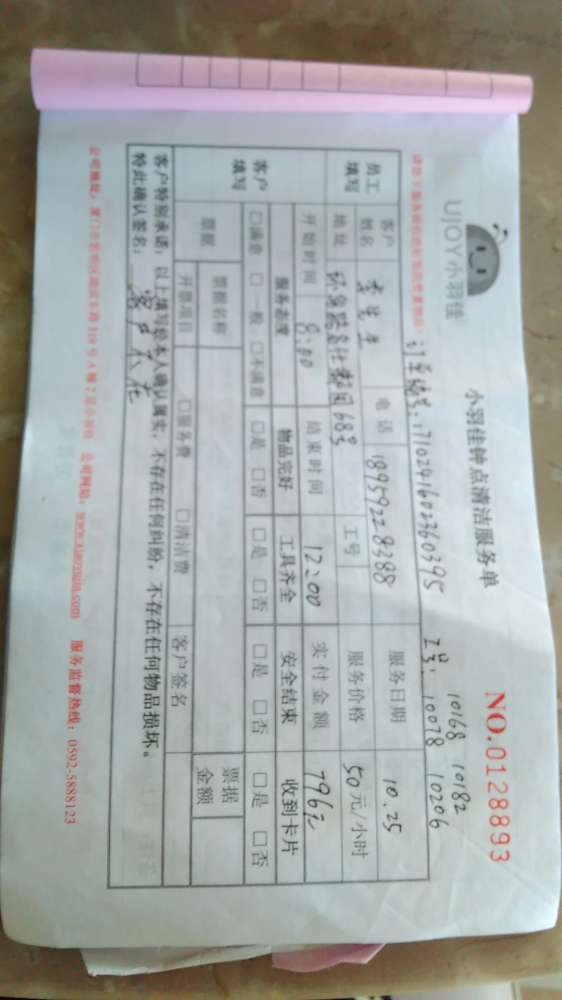 UJOY小羽佳
小羽佳钟点清洁服务单
NO.0128893
10168 10182
订单编号:1710241602360395 工号:10078 10206
员工填写 客户姓名 李先生 电话 18959228388 服务日期 10.25
地址 68号 工号 服务价格 50元/小时
开始时间 8:00 结束时间 12:00 实付金额 796元
客户填写 服务态度 物品完好 工具齐全 安全结束 收到卡片
□满意 □一般 □不满意 □是 □否 □是 □否 □是 □否 □是 □否
票据 票据名称 票据金额
开票项目 □服务费 □清洁费 客户签名
客户特别承诺:以上填写经本人确认属实,不存在任何纠纷,不存在任何物品损坏。
特此确认签名:客户不在
公司网站:www.xiaoyujia.com 服务监督热线:0592-5888123